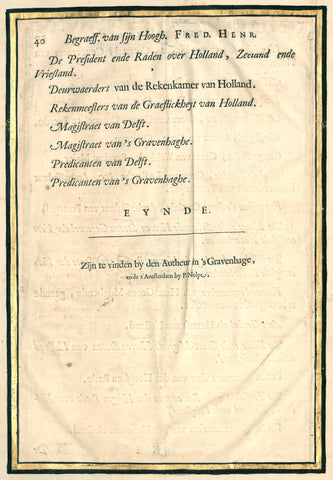 40 Begraeff. van sijn Hoogh. FRED. HENR.
De President ende Raden over Holland, Zeeland ende
Vriesland.
Deurwaerders van de Rekenkamer van Holland.
Rekenmeesters van de Graeflickheyt van Holland.
Magistraet van Delft.
Magistraet van 's Gravenhaghe.
Predicanten van Delft.
Predicanten van 's Gravenhaghe.
EYNDE.
Zijn te vinden by den Autheur in 's Gravenhage,
ende t'Amsterdam by P. Nolpe.